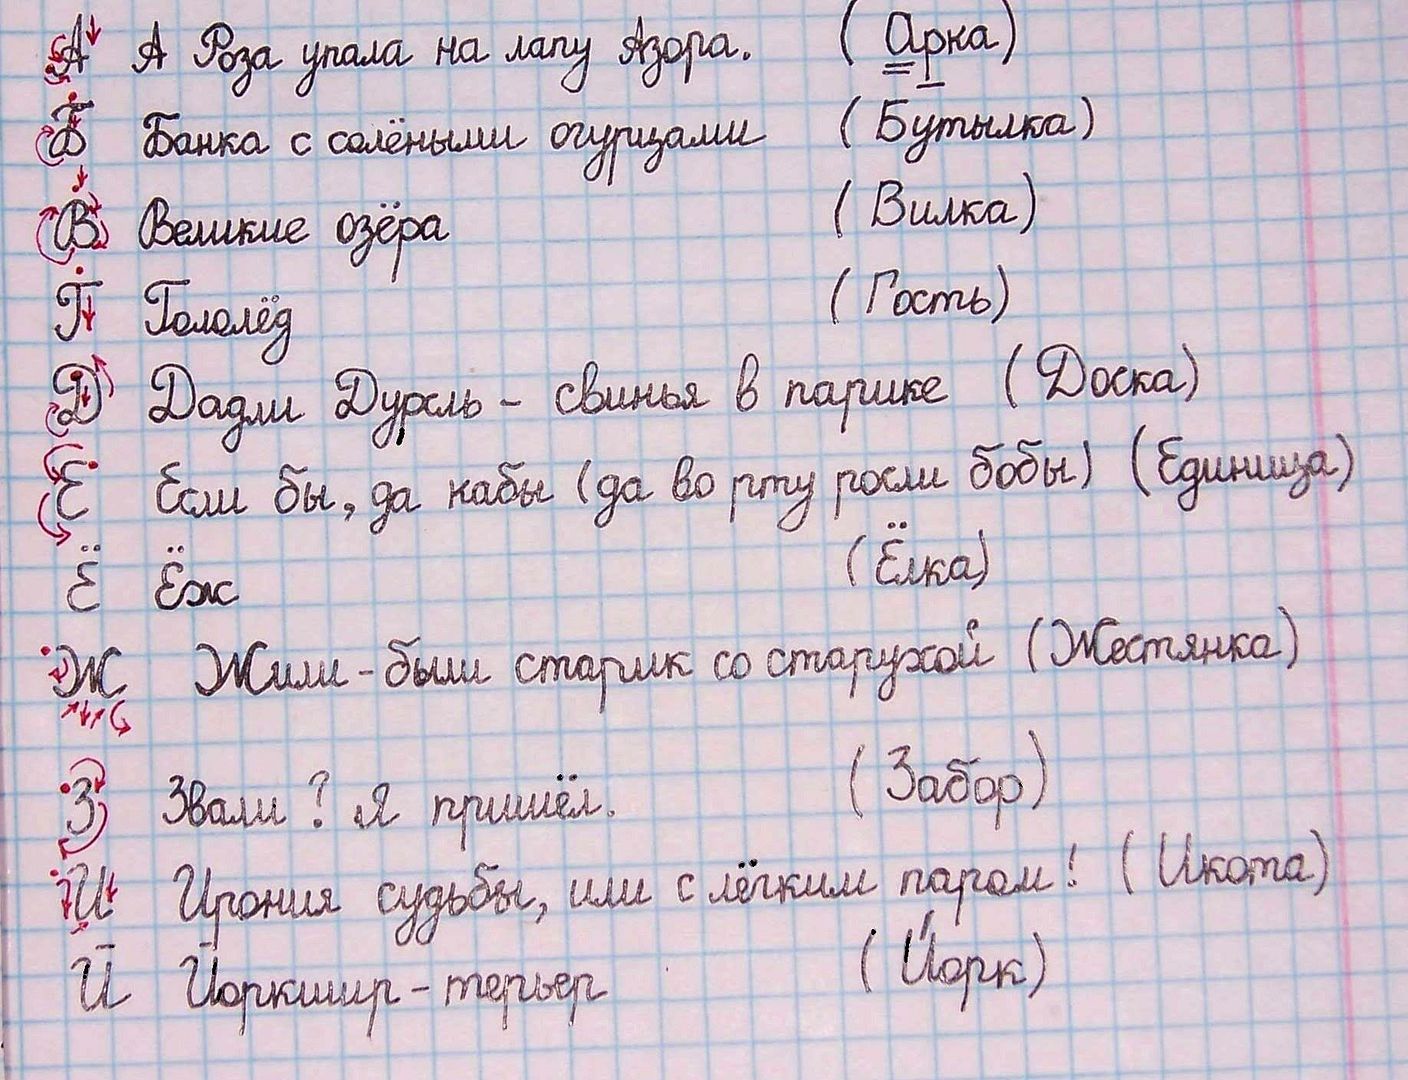 А А Роза упала на лапу Азора. (Арка)
Б Банка с солёными огурцами (Бутылка)
В Великие озёра (Вилка)
Г Гололёд (Гость)
Д Дадли Дурсль - свинья в парике (Доска)
Е Если бы, да кабы (да во рту росли бобы) (Единица)
Ё Ёж (Ёлка)
Ж Жили-были старик со старухой (Жестянка)
З Звали? Я пришёл. (Забор)
И Ирония судьбы, или с лёгким паром! (Икота)
Й Йоркшир-терьер (Йорк)